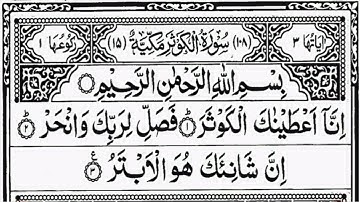 اٰیَاتُهَا ۳ (۱۰۸) سُوْرَةُ الْكَوْثَرِ مَكِّیَّةٌ (۱۵) رُكُوْعُهَا ۱
بِسْمِ اللّٰهِ الرَّحْمٰنِ الرَّحِیْمِ
اِنَّاۤ اَعْطَیْنٰكَ الْكَوْثَرَ ۱ فَصَلِّ لِرَبِّكَ وَانْحَرْ ۲
اِنَّ شَانِئَكَ هُوَ الْاَبْتَرُ ۳